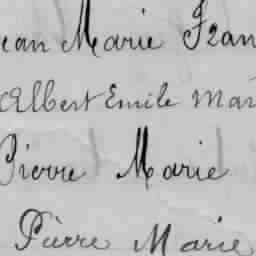 ean Marie Fran
Albert Emile Mar
Pierre Marie
Pierre Marie